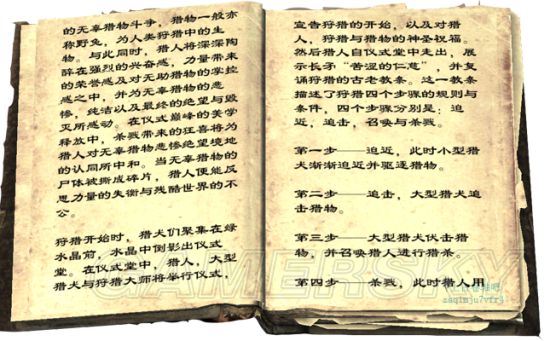 的无辜猎物斗争，猎物一般亦
称野兔，为人类狩猎中的生
物。与此同时，猎人将深深陶
醉在强烈的兴奋感，力量带来
的荣誉感及对无助猎物的掌控
感之中，并为无辜猎物的悲
惨，纯洁以及最终的绝望与毁
灭所感动。在仪式巅峰的美学
释放中，杀戮带来的狂喜将为
猎人对无辜猎物悲惨绝望境地
的认同所中和。当无辜猎物的
尸体被撕成碎片，猎人便能反
思力量的失衡与残酷世界的不
公。
狩猎开始时，猎犬们聚集在绿
水晶前，水晶中倒影出仪式
堂。在仪式堂中，猎人，大型
猎犬与狩猎大师将举行仪式，
宣告狩猎的开始，以及对猎
人，狩猎与猎物的神圣祝福。
然后猎人自仪式堂中走出，展
示长矛“苦涩的仁慈”，并复
诵狩猎的古老教条。这一教条
描述了狩猎四个步骤的规则与
条件，四个步骤分别是：迫
近，追击，召唤与杀戮。
第一步——迫近，此时小型猎
犬渐渐迫近并驱逐猎物。
第二步——追击，大型猎犬追
击猎物。
第三步——大型猎犬伏击猎
物，并召唤猎人进行猎杀。
第四步——杀戮，此时猎人用
GAMERSKY